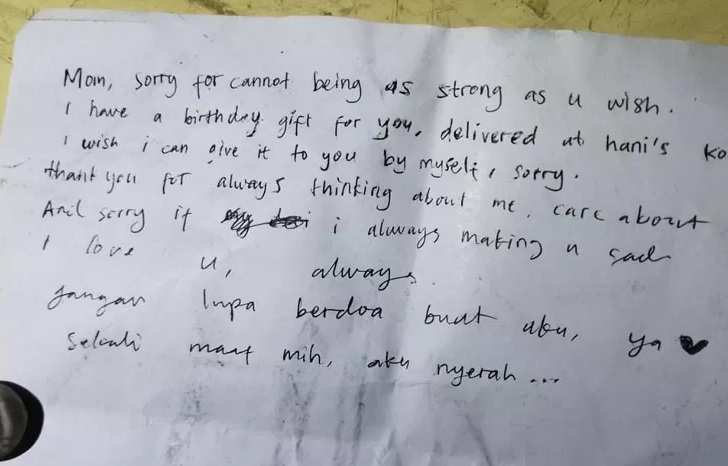 Mom, sorry for cannot being as strong as u wish.
I have a birthday gift for you, delivered at hani's ko
I wish i can give it to you by myself, sorry.
thank you for always thinking about me, care about
And sorry if i always making u sad
I love u, always
Jangan lupa berdoa buat aku, ya ♥
Sekali maaf mih, aku nyerah ...